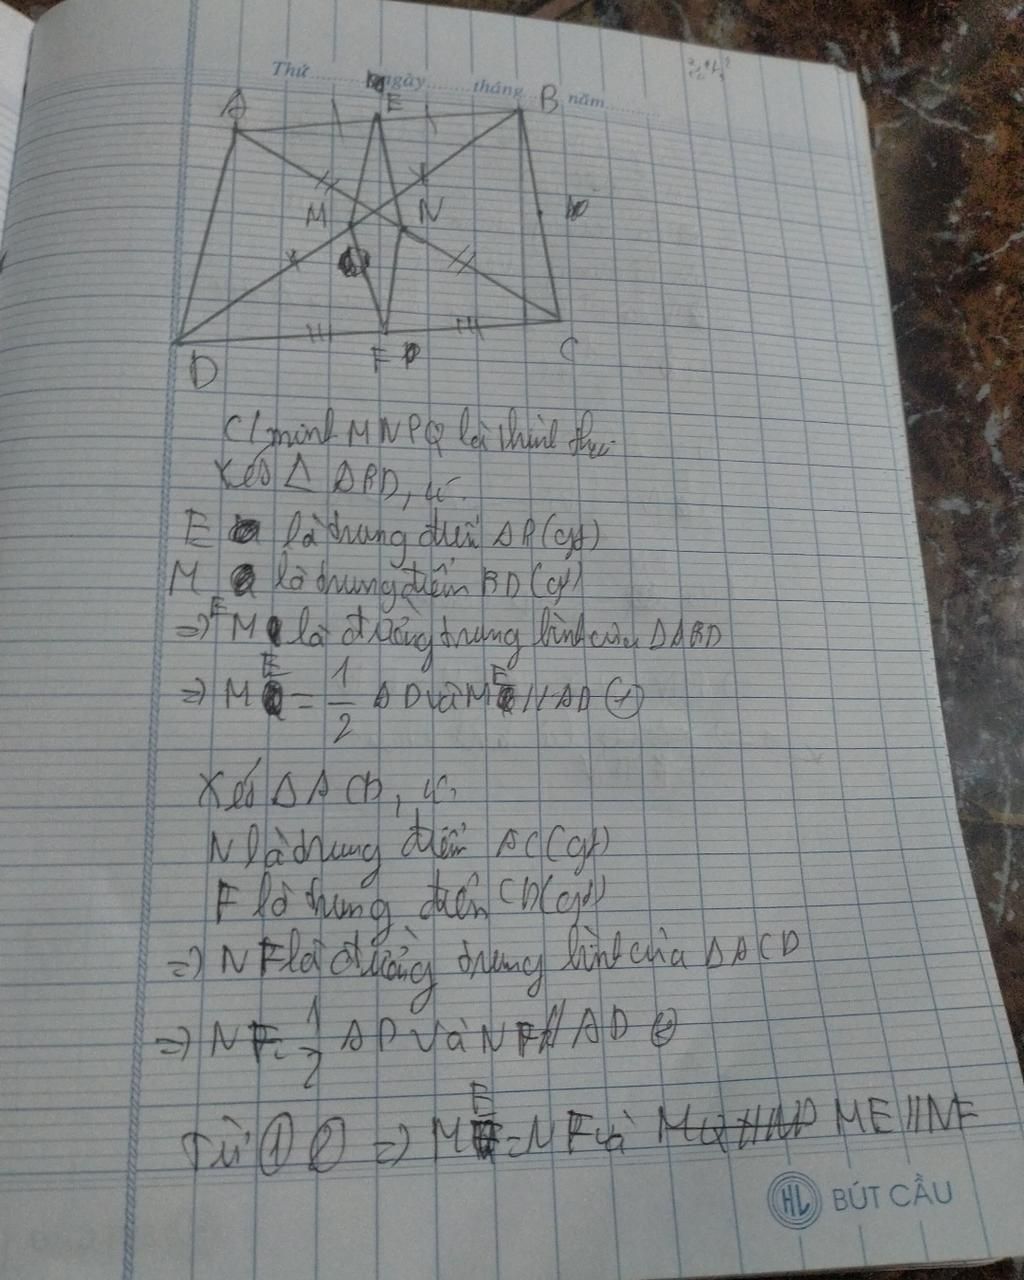 Thứ ngày tháng năm
A E B
M N
D F C
C/minh MNPQ là hình
Xét Δ ABD, có
E là trung điểm AB (gt)
M là trung điểm BD (gt)
=> EM là đường trung bình của ΔABD
=> ME = 1/2 AD và ME // AD (1)
Xét Δ ACD, có
N là trung điểm AC (gt)
F là trung điểm CD (gt)
=> NF là đường trung bình của ΔACD
=> NF = 1/2 AD và NF // AD (2)
Từ (1) (2) => ME = NF và ME // NF
HL BÚT CẦU